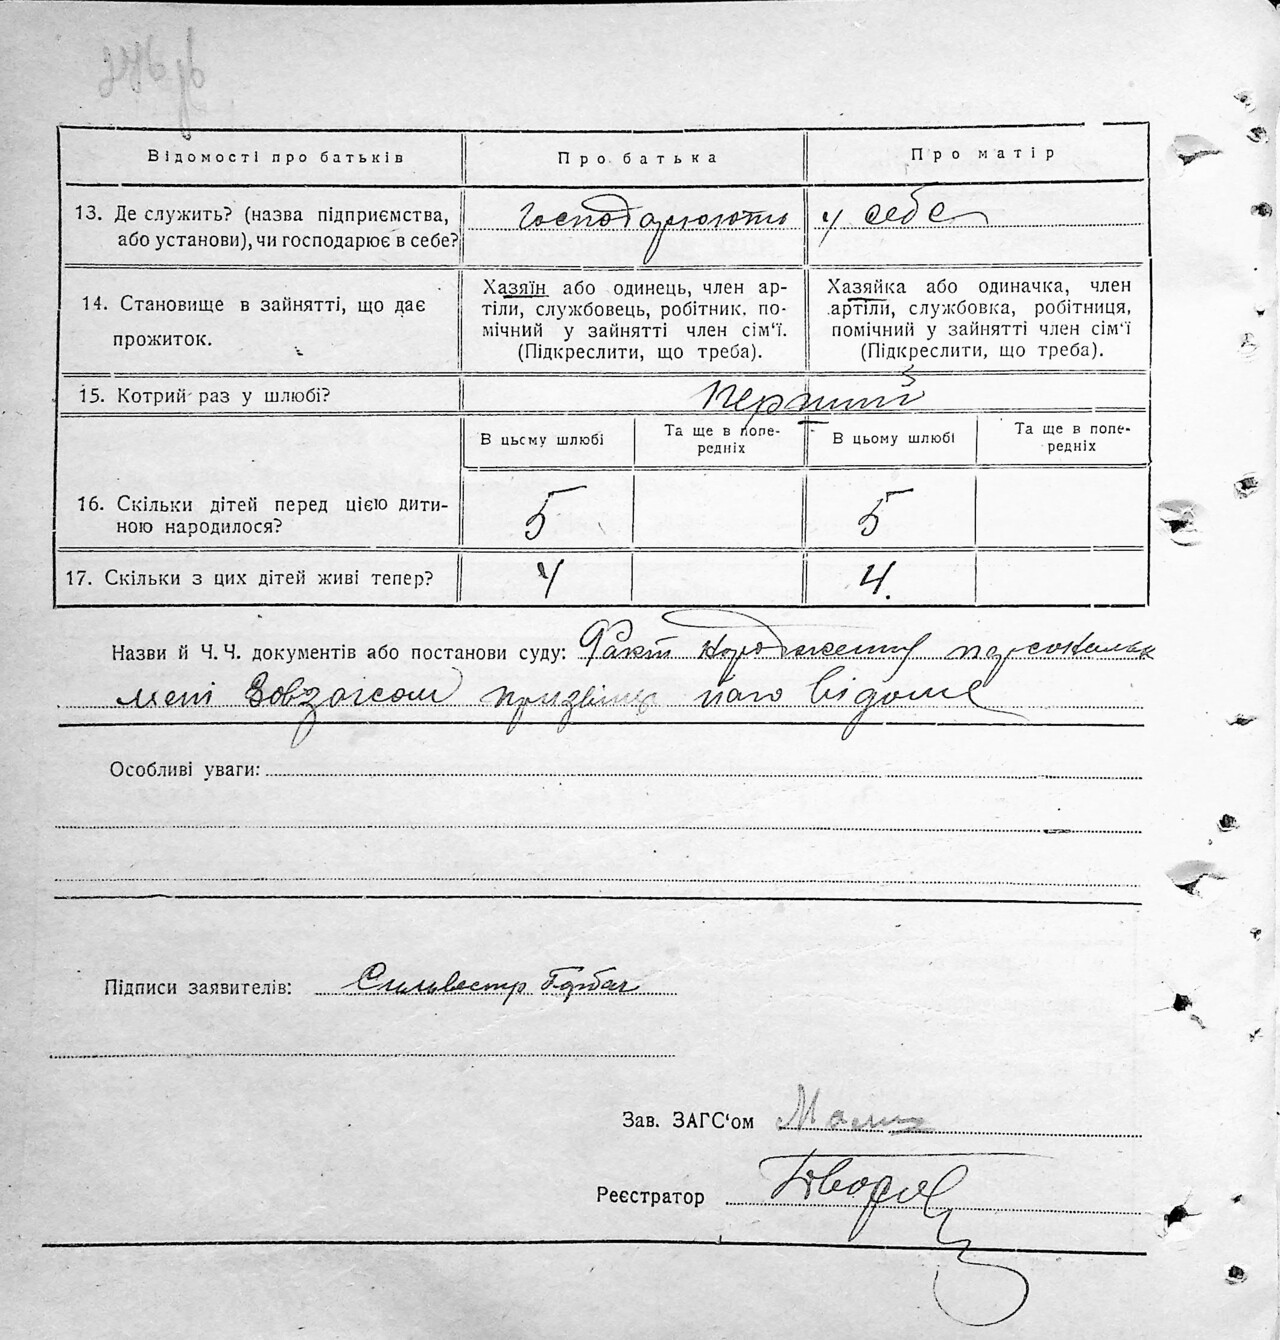 Відомості про батьків
Про батька
Про матір
13. Де служить? (назва підприємства,
або установи), чи господарює в себе?
господарюють у себе
14. Становище в зайнятті, що дає
прожиток.
Хазяїн або одинець, член ар-
тіли, службовець, робітник. по-
мічний у зайнятті член сім'ї.
(Підкреслити, що треба).
Хазяйка або одиначка, член
артіли, службовка, робітниця,
помічний у зайнятті член сім'ї
(Підкреслити, що треба).
15. Котрий раз у шлюбі?
перший
В цьому шлюбі
Та ще в попе-
редніх
В цьому шлюбі
Та ще в попе-
редніх
16. Скільки дітей перед цією дити-
ною народилося?
5
5
17. Скільки з цих дітей живі тепер?
4
4.
Назви й Ч. Ч. документів або постанови суду: Факт народження персонально
мені його відоме
Особливі уваги:
Підписи заявителів: Сильвестр Горбач
Зав. ЗАГС'ом
Реєстратор